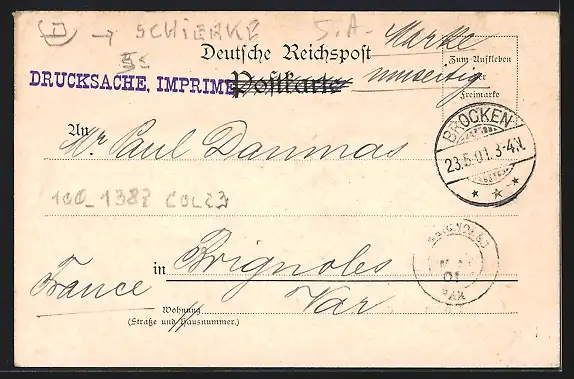 D → SCHIERKE S.A.
Deutsche Reichspost
Marke
umseitig
Zum Aufkleben
der
Freimarke
DRUCKSACHE, IMPRIME
Postkarte
An
Mr Paul Danmas
BROCKEN
23.5.01. 3-4 N.
100_1382 COL23
BRIGNOLES
01
VAR
in Brignoles
France
Var
Wohnung
(Straße und Hausnummer.)